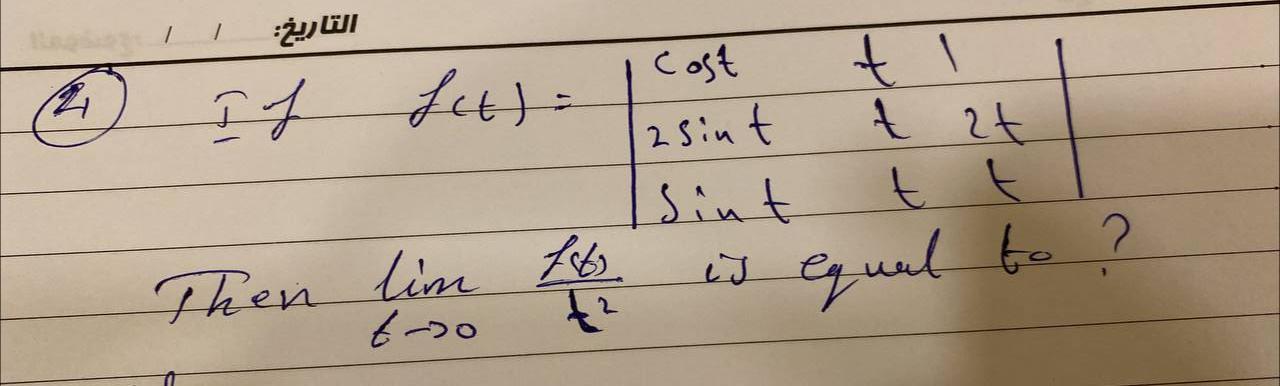 التاريخ: / /
2 If f(t) = | cost t 1 |
| 2sint t 2t |
| sint t t |
Then lim t→0 f(t)/t² is equal to ?